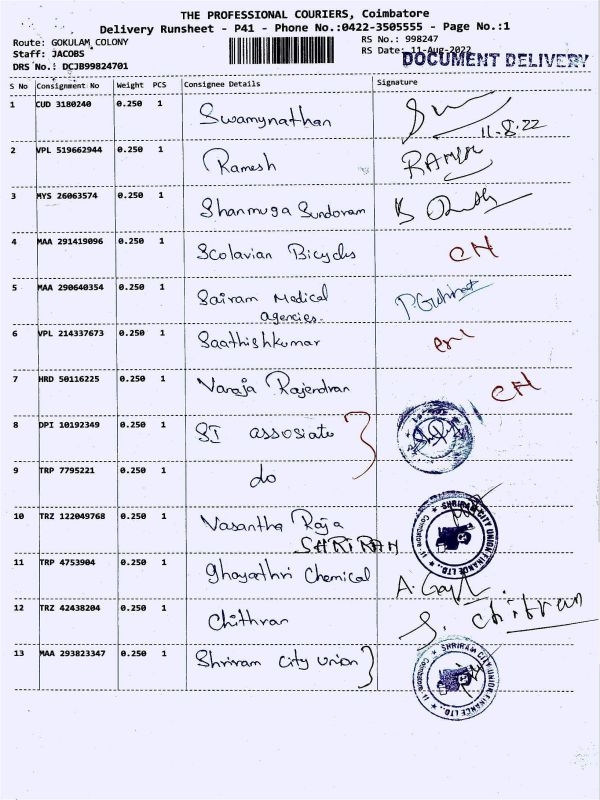 THE PROFESSIONAL COURIERS, Coimbatore
Delivery Runsheet - P41 - Phone No.:0422-3505555 - Page No.:1
Route: GOKULAM_COLONY RS No.: 998247
Staff: JACOBS RS Date: 11-Aug-2022
DOCUMENT DELIVERY
DRS No.: DCJB99824701
S No Consignment No Weight PCS Consignee Details Signature
1 CUD 3180240 0.250 1 Swamynathan
11.8.22
2 VPL 519662944 0.250 1 Ramesh RAMESH
3 MYS 26063574 0.250 1 Shanmuga Sundoram
4 MAA 291419096 0.250 1 Scolavian Bicycles
5 MAA 290640354 0.250 1 Sairam Medical
agencies.
6 VPL 214337673 0.250 1 Saathishkumar
7 HRD 50116225 0.250 1 Vanaja Rajendran
8 DPI 10192349 0.250 1 SI assosiate
9 TRP 7795221 0.250 1 do
10 TRZ 122049768 0.250 1 Vasantha Raja
SHRIRAM
SHRIRAM CITY UNION FINANCE LTD.
11 TRP 4753904 0.250 1 Ghayathri Chemical
12 TRZ 42438204 0.250 1 Chithran S. Chithran
13 MAA 293823347 0.250 1 Shriram City union
SHRIRAM CITY UNION FINANCE LTD.